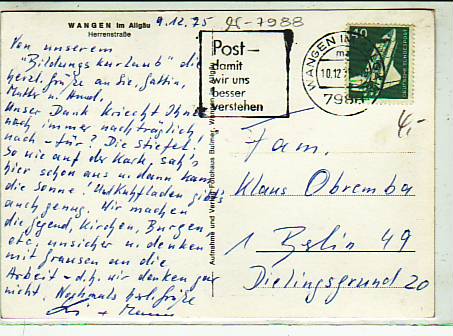 WANGEN im Allgäu
Herrenstraße
9.12.75
X-7988
Von unserem
"Bildungsurlaub" die
herzl. Grüße an Sie, Gattin,
Mutter u. Hund.
Unser Dank kriecht Ihnen
noch immer nachträglich
nach - für? Die Stiefel!
So wie auf der Karte, sah's
hier schon aus u. dann kam
die Sonne! Und Kuhfladen gibt's
auch genug. Wir machen
die Gegend, Kirchen, Burgen,
etc, unsicher u. denken
mit Grausen an die
Arbeit - d.h. wir denken gar
nicht. Nochmals herzl. Grüße
Post-
damit
wir uns
besser
verstehen
WANGEN IM
10.12.75
7988
40
DEUTSCHE BUNDESPOST
4,-
Aufnahme und Verlag Fotohaus Wangen im Allgäu
Fam.
Klaus Obremba
1 Berlin 49
Dielingsgrund 20